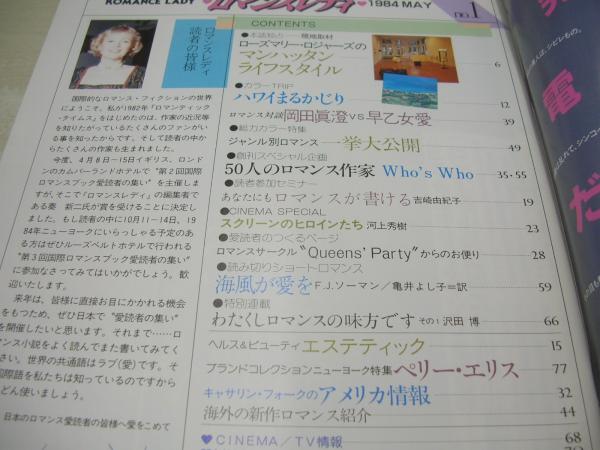 ROMANCE LADY
ロマンスレディ
1984 MAY
no.1
ロマンスレディ
読者の皆様
国際的なロマンス・フィクションの世界
にようこそ。私が1982年『ロマンティック
・タイムス』をはじめたのは、作家の近況等
を知りたがっているたくさんのファンがい
る事を知ったからです。そして読者の中か
らたくさんの作家も生まれました。
今度、4月8日―15日イギリス、ロンド
ンのカムバーランドホテルで“第2回国際
ロマンスブック愛読者の集い”を主催しま
すが、そこで『ロマンスレディ』の編集者で
ある奏 新二氏が賞を受けることに決定し
ました。もし読者の中に10月11―14日、19
84年ニューヨークにいらっしゃる予定のあ
る方はぜひルーズベルトホテルで行われる
“第3回国際ロマンスブック愛読者の集い”
に参加なさってみてはいかがでしょう。歓
迎いたします。
来年は、皆様に直接お目にかかれる機会
をもつため、ぜひ日本で“愛読者の集い”
を開催したいと思います。それまで……ロ
マンス小説をよく読んでまた書いてみてく
さい。世界の共通語はラブ(愛)です。そ
国際語を私たちは知っているのですから
どん使いましょう。
日本のロマンス愛読者の皆様へ愛をこめて
CONTENTS
●本誌独占――現地取材
ローズマリー・ロジャーズの
マンハッタン
ライフスタイル 6
●カラーTRIP
ハワイまるかじり 12
ロマンス対談 岡田眞澄VS早乙女愛 39
●総力カラー特集
ジャンル別ロマンス 一挙大公開 49
●創刊スペシャル企画
50人のロマンス作家 Who's Who 35・55
●読者参加セミナー
あなたにもロマンスが書ける 吉崎由紀子 19
●CINEMA SPECIAL
スクリーンのヒロインたち 河上秀樹 23
●愛読者のつくるページ
ロマンスサークル“Queens' Party”からのお便り 28
●読み切りショートロマンス
海風が愛を F.J.ソーマン／亀井よし子＝訳 59
●特別連載
わたくしロマンスの味方です その1 沢田 博 66
ヘルス&ビューティ エステティック 15
ブランドコレクションニューヨーク特集 ペリー・エリス 77
キャサリン・フォークのアメリカ情報 32
海外の新作ロマンス紹介 44
♥CINEMA／TV情報 68
電
だ